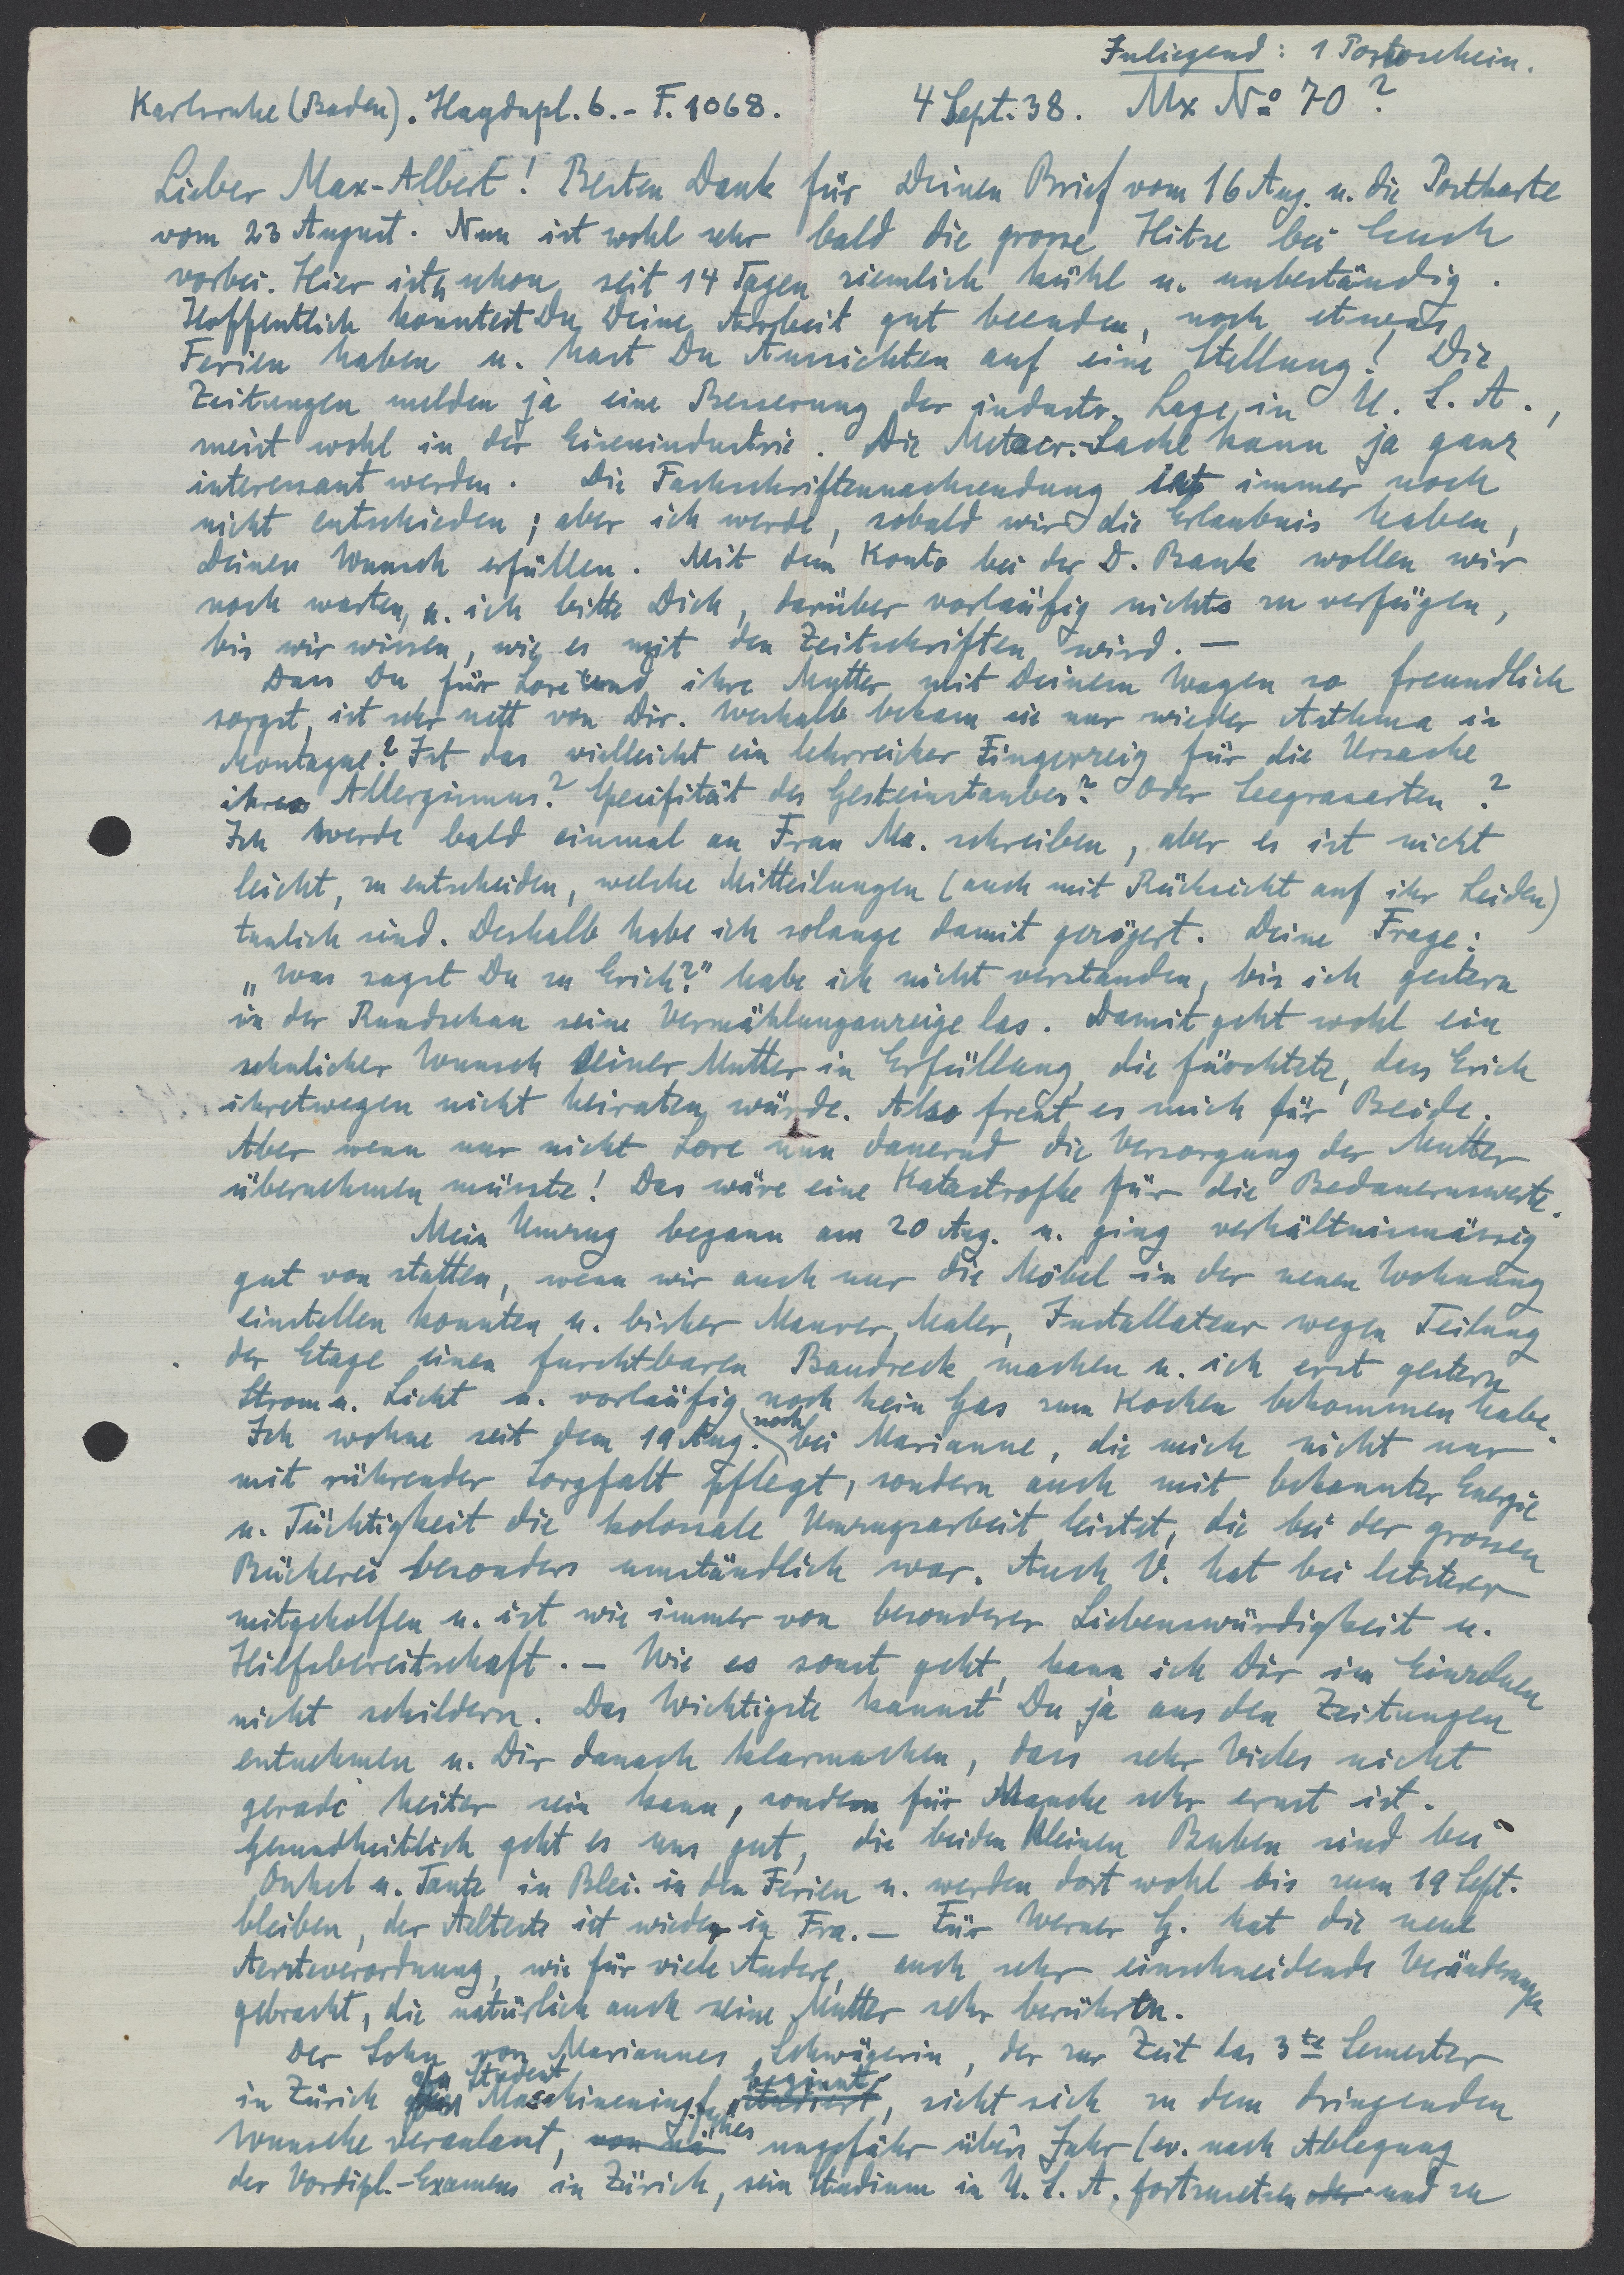 Inliegend: 1 Portoschein.
Karlsruhe (Baden). Haydnpl. 6. - F. 1068. 4 Sept. 38. Mx No 70?
Lieber Max-Albert! Besten Dank für Deinen Brief vom 16 Aug. u. die Postkarte
vom 23 August. Nun ist wohl sehr bald die grosse Hitze bei Euch
vorbei. Hier ists schon seit 14 Tagen ziemlich kühl u. unbeständig.
Hoffentlich konntest Du Deine Arbeit gut beenden, noch etwas
Ferien haben u. hast Du Aussichten auf eine Stellung! Die
Zeitungen melden ja eine Besserung der industr. Lage in U. S. A.,
meist wohl in der Eisenindustrie. Die Sache kann ja ganz
interessant werden. Die Fachschriftennachsendung ist immer noch
nicht entschieden; aber ich werde, sobald wir die Erlaubnis haben,
Deinen Wunsch erfüllen. Mit dem Konto bei der D. Bank wollen wir
noch warten, u. ich bitte Dich, darüber vorläufig nichts zu verfügen,
bis wir wissen, wie es mit den Zeitschriften wird. —
Dass Du für Lore und ihre Mutter mit Deinem Wagen so freundlich
sorgst, ist sehr nett von Dir. Weshalb bekam sie nur wieder Asthma in
Montague? Ist das vielleicht ein lehrreicher Fingerzeig für die Ursache
ihres Allergismus? Spezifität des Gesteinstaubes? Oder Seegrasarten?
Ich werde bald einmal an Frau Ma. schreiben, aber es ist nicht
leicht, zu entscheiden, welche Mitteilungen (auch mit Rücksicht auf ihr Leiden)
tunlich sind. Deshalb habe ich solange damit gezögert. Deine Frage:
„Was sagst Du zu Erich?" habe ich nicht verstanden, bis ich gestern
in der Rundschau seine Vermählunganzeige las. Damit geht wohl ein
sehnlicher Wunsch seiner Mutter in Erfüllung, die fürchtete, dass Erich
ihretwegen nicht heiraten würde. Also freut es mich für Beide.
Aber wenn nur nicht Lore nun dauernd die Versorgung der Mutter
übernehmen müsste! Das wäre eine Katastrofhe für die Bedauernswerte.
Mein Umzug begann am 20 Aug. u. ging verhältnismässig
gut von statten, wenn wir auch nur die Möbel in der neuen Wohnung
einstellen konnten u. bisher Maurer, Maler, Installateur wegen Teilung
der Etage einen furchtbaren Baudreck machen u. ich erst gestern
Strom u. Licht u. vorläufig noch kein Gas zum Kochen bekommen habe.
Ich wohne seit dem 19 Aug. noch bei Marianne, die mich nicht nur
mit rührender Sorgfalt pflegt, sondern auch mit bekannter Energie
u. Tüchtigkeit die kolossale Umzugsarbeit leistet, die bei der grossen
Bücherei besonders umständlich war. Auch V. hat bei letzterer
mitgeholfen u. ist wie immer von besonderer Liebenswürdigkeit u.
Hilfsbereitschaft. — Wie es sonst geht, kann ich Dir im Einzelnen
nicht schildern. Das Wichtigste kannst Du ja aus den Zeitungen
entnehmen u. Dir danach klarmachen, dass sehr Vieles nicht
gerade heiter sein kann, sondern für Manche sehr ernst ist.
Gesundheitlich geht es uns gut, die beiden kleinen Buben sind bei
Onkel u. Tante in Blei. in den Ferien u. werden dort wohl bis zum 19 Sept.
bleiben, der Aelteste ist wieder in Fra. — Für Werner G. hat die neue
Aerzteverordnung, wie für viele Andere, auch sehr einschneidende Veränderungen
gebracht, die natürlich auch seine Mutter sehr berührten.
Der Sohn von Mariannes Schwägerin, der zur Zeit das 3te Semester
in Zürich als Student Maschineningf. studiert beginnt, sieht sich zu dem dringenden
Wunsche veranlasst, ungefähr übers Jahr (ev. nach Ablegung
des Vordipl.-Examens in Zürich, sein Studium in U. S. A. fortzusetzen oder und zu